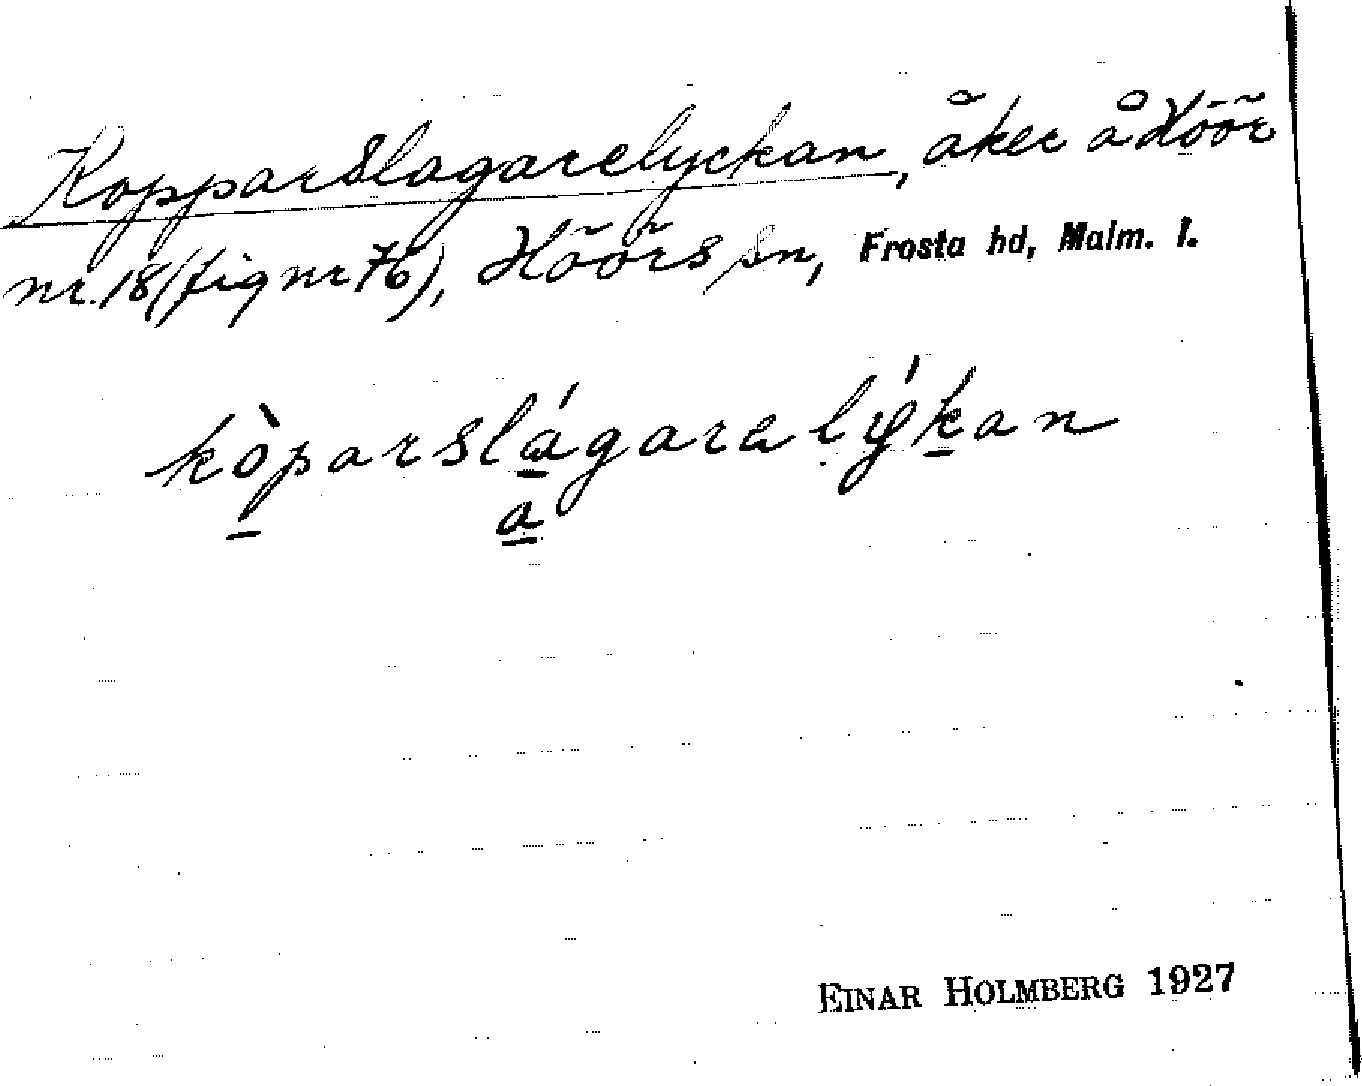 Kopparslagarelyckan, åker å Höör
nr. 18 (fig nr 76), Höörs sn, Frosta hd, Malm. l.
kòparslágaralýkan
a
EINAR HOLMBERG 1927